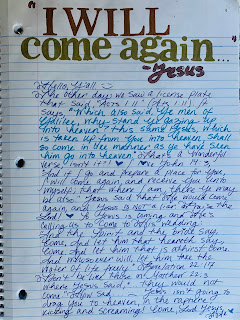 "I WILL
come again...
-Jesus
Hello, Y'all
The other day we saw a license plate
that said, "Acts 1 11" (Acts 1:11) It
says, "Which also said, Ye men of
Galilee, why stand ye gazing up
into heaven? this same Jesus, which
is taken up from you into heaven, shall
so come in like manner as ye have seen
him go into heaven." What a wonderful
verse isn't it? John 14:3
And if I go and prepare a place for you,
I will come again, and receive you unto
myself; that where I am, there ye may
be also." Jesus said that He would come
again, and Jesus is not a liar
Lord! Jesus is coming and He's
calling us to
And the Spirit and the bride say,
Come. And let him that heareth say,
Come. And let him that is athirst come.
And whosoever will, let him take the
water of life freely." Revelation 22:17
Don't be like those in Matthew 22:3
where Jesus said, "they would not
come." Jesus isn't going to
drag you to heaven, in the rapture
kicking and screaming! Come,